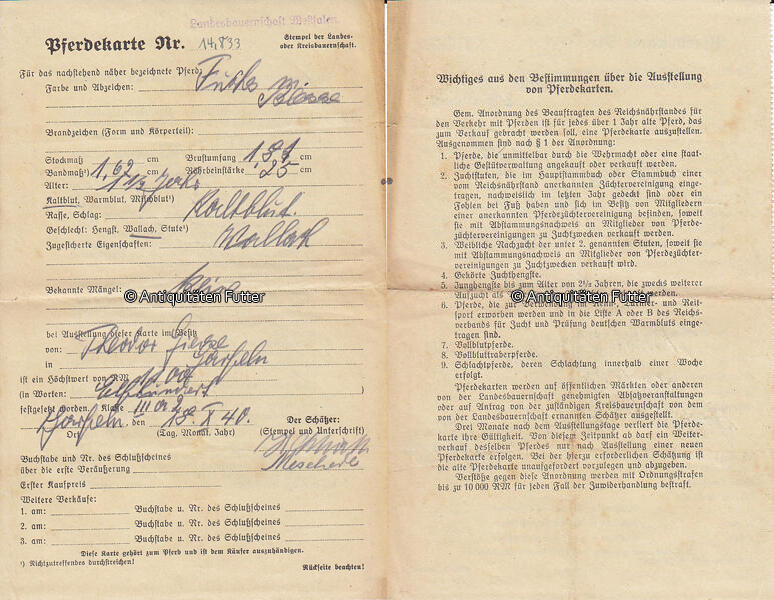 Landesbauernschaft Westfalen.
Pferdekarte Nr. 14,833
Stempel der Landes-
oder Kreisbauernschaft.
Für das nachstehend näher bezeichnete Pferd:
Farbe und Abzeichen: Fuchs m.
Blesse
Brandzeichen (Form und Körperteil):
Stockmaß cm Brustumfang 1,81 cm
Bandmaß¹) 1,62 cm Röhrbeinstärke 25 cm
Alter: 1½ Jahr
Kaltblut, Warmblut, Mischblut¹)
Rasse, Schlag: Kaltblut.
Geschlecht: Hengst, Wallach, Stute¹) Wallach
Zugesicherte Eigenschaften:
Bekannte Mängel: keine
bei Ausstellung dieser Karte im Besitz
von: Theodor
in
ist ein Höchstwert von RM 1100
(in Worten: Elfhundert )
festgesetzt worden. Klasse III
, den 18. X 40.
Ort (Tag, Monat, Jahr)
Der Schätzer:
(Stempel und Unterschrift)
Buchstabe und Nr. des Schlußscheines
über die erste Veräußerung
Erster Kaufpreis
Weitere Verkäufe:
1. am: Buchstabe u. Nr. des Schlußscheines
2. am: Buchstabe u. Nr. des Schlußscheines
3. am: Buchstabe u. Nr. des Schlußscheines
Diese Karte gehört zum Pferd und ist dem Käufer auszuhändigen.
¹) Nichtzutreffendes durchstreichen!
Rückseite beachten!
© Antiquitäten Futter
Wichtiges aus den Bestimmungen über die Ausstellung
von Pferdekarten.
Gem. Anordnung des Beauftragten des Reichsnährstandes für
den Verkehr mit Pferden ist für jedes über 1 Jahr alte Pferd, das
zum Verkauf gebracht werden soll, eine Pferdekarte auszustellen.
Ausgenommen sind nach § 1 der Anordnung:
1. Pferde, die unmittelbar durch die Wehrmacht oder eine staat-
liche Gestütverwaltung angekauft oder verkauft werden.
2. Zuchtstuten, die im Hauptstammbuch oder Stammbuch einer
vom Reichsnährstand anerkannten Züchtervereinigung einge-
tragen, nachweislich im letzten Jahr gedeckt sind oder ein
Fohlen bei Fuß haben und sich im Besitz von Mitgliedern
einer anerkannten Pferdezüchtervereinigung befinden, soweit
sie mit Abstammungsnachweis an Mitglieder von Pferde-
züchtervereinigungen zu Zuchtzwecken verkauft werden.
3. Weibliche Nachzucht der unter 2. genannten Stuten, soweit sie
mit Abstammungsnachweis an Mitglieder von Pferdezüchter-
vereinigungen zu Zuchtzwecken verkauft wird.
4. Gekörte Zuchthengste.
5. Junghengste bis zum Alter von 2½ Jahren, die zwecks weiterer
Aufzucht als werden.
6. Pferde, die zur Verwendung im Renn-, Turnier- und Reit-
sport erworben werden und in die Liste A oder B des Reichs-
verbands für Zucht und Prüfung deutschen Warmbluts einge-
tragen sind.
7. Vollblutpferde.
8. Vollbluttraberpferde.
9. Schlachtpferde, deren Schlachtung innerhalb einer Woche
erfolgt.
Pferdekarten werden auf öffentlichen Märkten oder anderen
von der Landesbauernschaft genehmigten Absatzveranstaltungen
oder auf Antrag von der zuständigen Kreisbauernschaft von dem
von der Landesbauernschaft ernannten Schätzer ausgestellt.
Drei Monate nach dem Ausstellungstage verliert die Pferde-
karte ihre Gültigkeit. Von diesem Zeitpunkt ab darf ein Weiter-
verkauf desselben Pferdes nur nach Ausstellung einer neuen
Pferdekarte erfolgen. Bei der hierzu erforderlichen Schätzung ist
die alte Pferdekarte unaufgefordert vorzulegen und abzugeben.
Verstöße gegen diese Anordnung werden mit Ordnungsstrafen
bis zu 10 000 RM für jeden Fall der Zuwiderhandlung bestraft.
© Antiquitäten Futter